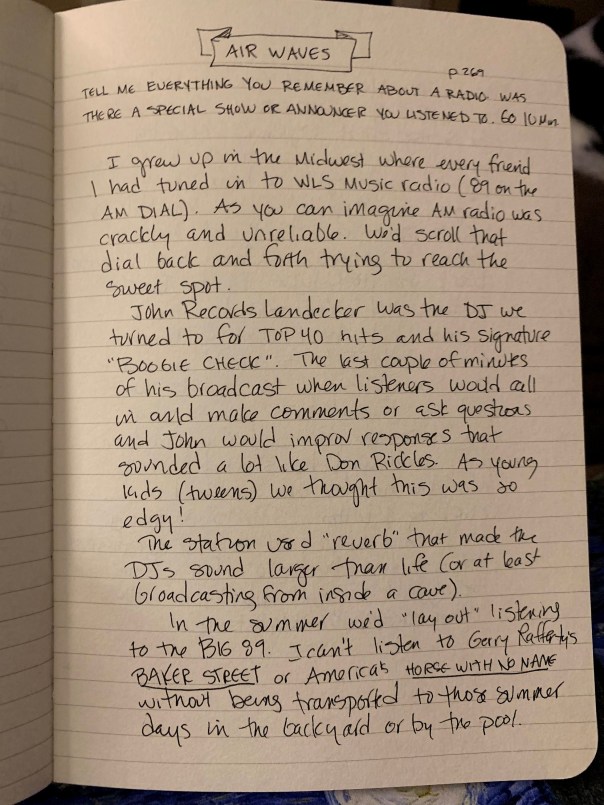 AIR WAVES
p. 269
TELL ME EVERYTHING YOU REMEMBER ABOUT A RADIO WAS
THERE A SPECIAL SHOW OR ANNOUNCER YOU LISTENED TO. GO 10 Min.
I grew up in the Midwest where every friend
I had tuned in to WLS Music radio (89 on the
AM DIAL). As you can imagine AM radio was
crackly and unreliable. We'd scroll that
dial back and forth trying to reach the
sweet spot.
John Records Landecker was the DJ we
turned to for TOP 40 hits and his signature
"BOOGIE CHECK". The last couple of minutes
of his broadcast when listeners would call
in and make comments or ask questions
and John would improv responses that
sounded a lot like Don Rickles. As young
kids (tweens) we thought this was so
edgy!
The station used "reverb" that made the
DJs sound larger than life (or at least
broadcasting from inside a cave).
In the summer we'd "lay out" listening
to the BIG 89. I can't listen to Gary Rafferty's
BAKER STREET or America's HORSE WITH NO NAME
without being transported to those summer
days in the backyard or by the pool.